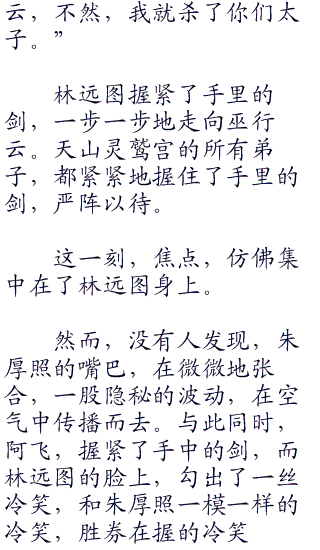 云，不然，我就杀了你们太
子。”
林远图握紧了手里的
剑，一步一步地走向巫行
云。天山灵鹫宫的所有弟
子，都紧紧地握住了手里的
剑，严阵以待。
这一刻，焦点，仿佛集
中在了林远图身上。
然而，没有人发现，朱
厚照的嘴巴，在微微地张
合，一股隐秘的波动，在空
气中传播而去。与此同时，
阿飞，握紧了手中的剑，而
林远图的脸上，勾出了一丝
冷笑，和朱厚照一模一样的
冷笑，胜券在握的冷笑